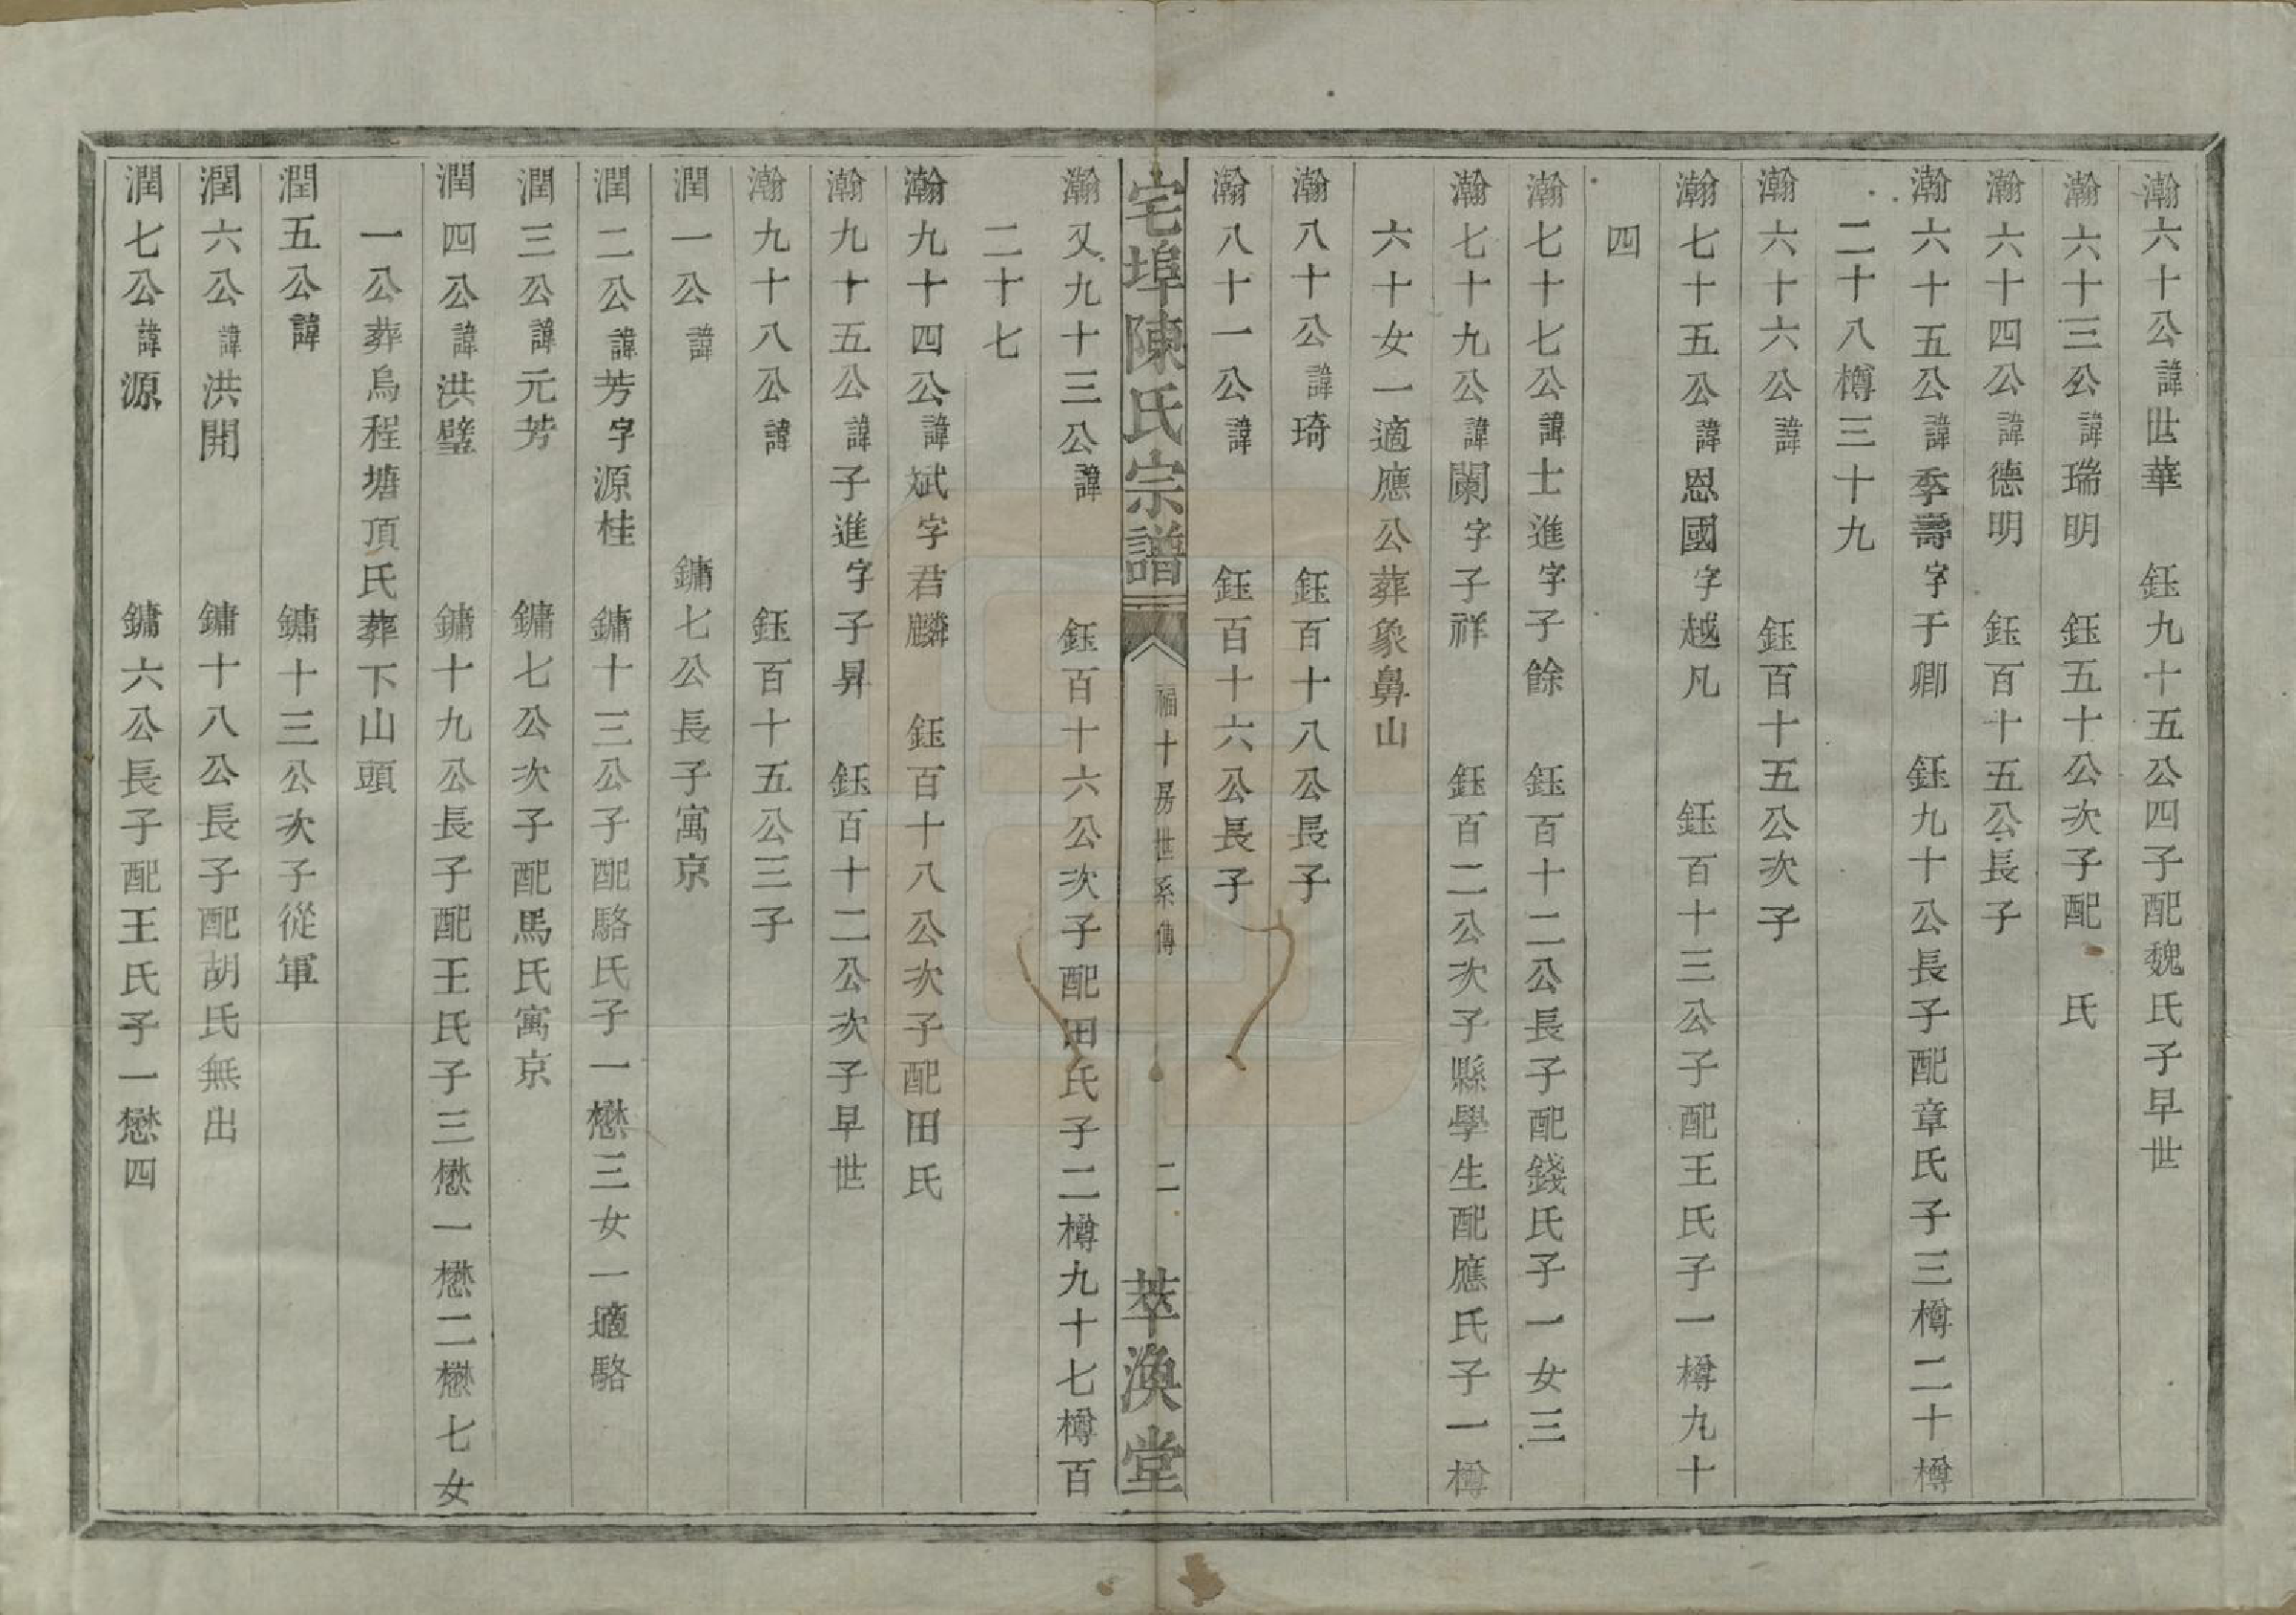 瀚六十公諱世華　鈺九十五公四子配魏氏子早世
瀚六十三公諱瑞明　鈺五十公次子配　氏
瀚六十四公諱德明　鈺百十五公長子
瀚六十五公諱季壽字于卿　鈺九十公長子配章氏子三樽二十樽
二十八樽三十九
瀚六十六公諱　鈺百十五公次子
瀚七十五公諱恩國字越凡　鈺百十三公子配王氏子一樽九十
四
瀚七十七公諱士進字子餘　鈺百十二公長子配錢氏子一女三
瀚七十九公諱闌字子祥　鈺百二公次子縣學生配應氏子一樽
六十女一適應公葬象鼻山
瀚八十公諱琦　鈺百十八公長子
瀚八十一公諱　鈺百十六公長子
宅埠陳氏宗譜　福十房世系傳　二　萃渙堂
瀚又九十三公諱　鈺百十六公次子配田氏子二樽九十七樽百
二十七
瀚九十四公諱斌字君麟　鈺百十八公次子配田氏
瀚九十五公諱子進字子昇　鈺百十二公次子早世
瀚九十八公諱　鈺百十五公三子
潤一公諱　鏞七公長子寓京
潤二公諱芳字源桂　鏞十三公子配駱氏子一懋三女一適駱
潤三公諱元芳　鏞七公次子配馬氏寓京
潤四公諱洪璧　鏞十九公長子配王氏子三懋一懋二懋七女
一公葬烏程塘頂氏葬下山頭
潤五公諱　鏞十三公次子從軍
潤六公諱洪開　鏞十八公長子配胡氏無出
潤七公諱源　鏞六公長子配王氏子一懋四